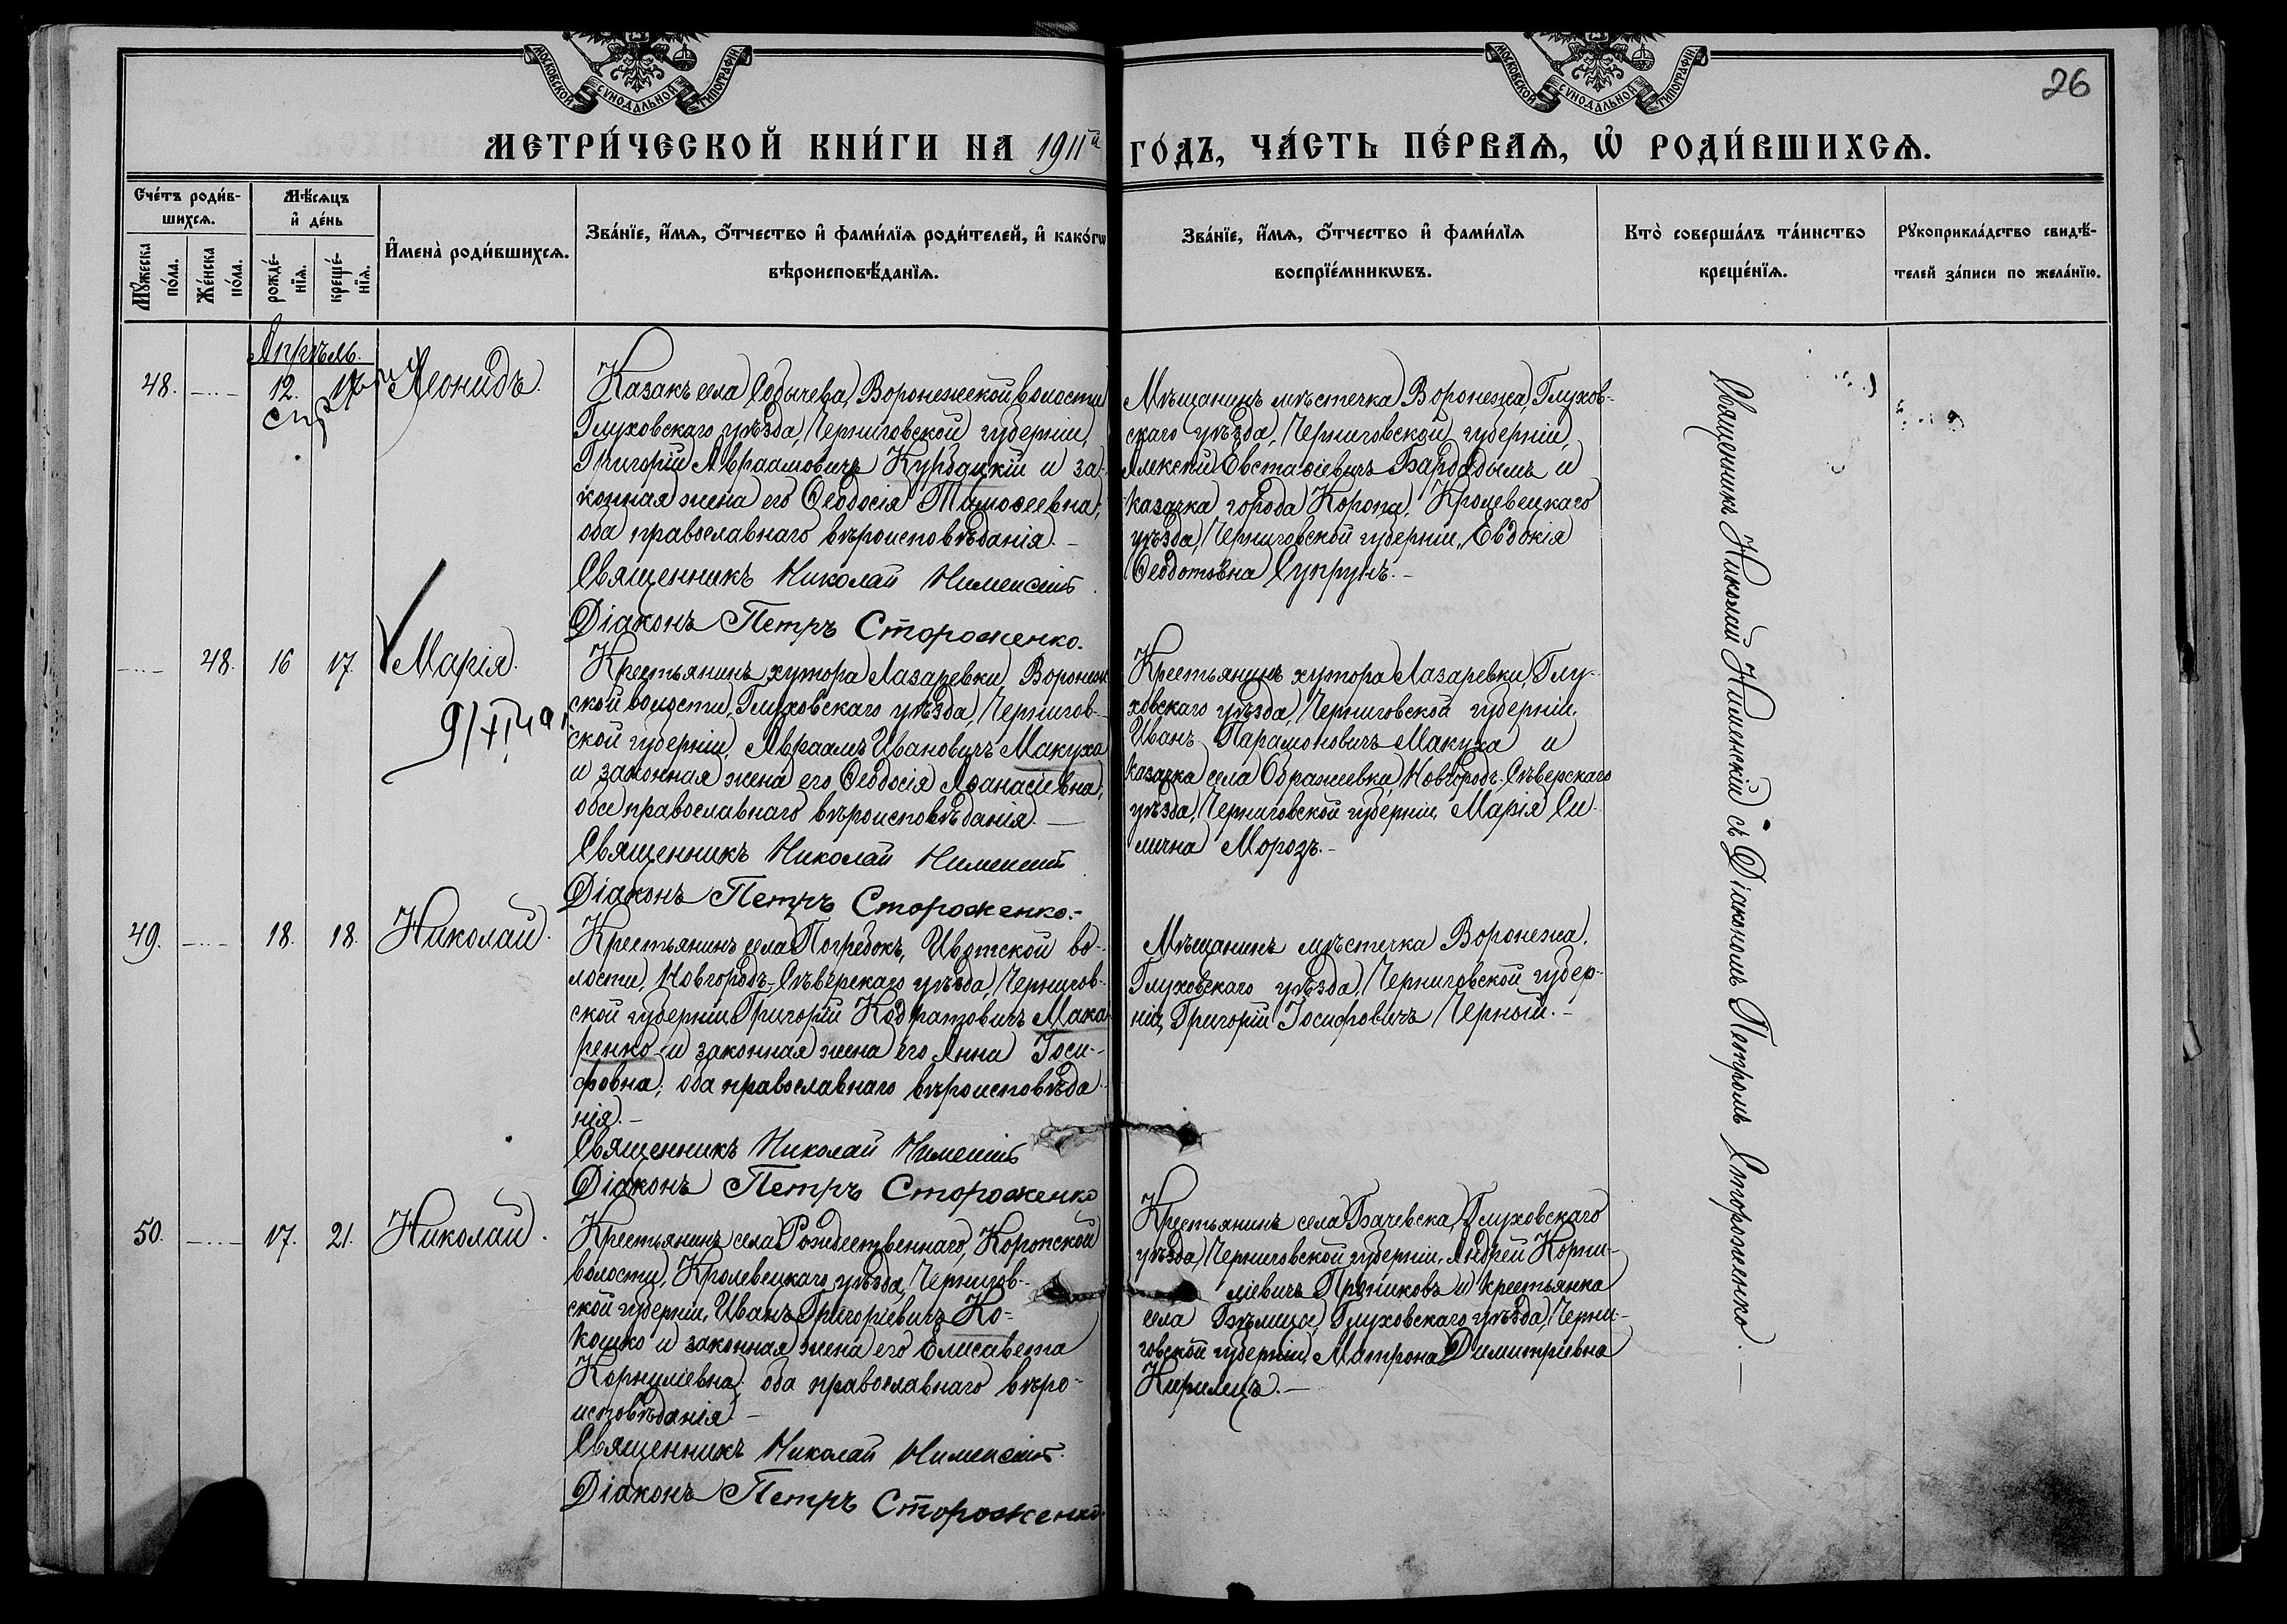 МОСКОВСКОЙ СѴНОДАЛЬНОЙ ТИПОГРАФІИ
МОСКОВСКОЙ СѴНОДАЛЬНОЙ ТИПОГРАФІИ
26
МЕТРИ́ЧЕСКОЙ КНИ́ГИ НА 1911й ГО́ДЪ, ЧА́СТЬ ПЕ́РВАѦ, Ѡ҆ РОДИ́ВШИХСѦ.
Сче́тъ роди́в-
шихсѧ.
Мꙋ́жеска по́ла.
Же́нска по́ла.
Мѣ́сѧцъ
и҆ де́нь
рожде́-
нїѧ.
креще́-
нїѧ.
И҆мена̀ роди́вшихсѧ.
Зва́нїе, и҆́мѧ, ѻ҆́тчество и҆ фами́лїѧ роди́телей, и҆ како́гѡ
вѣроисповѣ́данїѧ.
Зва́нїе, и҆́мѧ, ѻ҆́тчество и҆ фами́лїѧ
воспрїе́мникѡвъ.
Кто̀ соверша́лъ та́инство
креще́нїѧ.
Рꙋкоприкла́дство свидѣ́-
телей за́писи по жела́нїю.
Апрѣль.
48.
12.
17
Леонидъ.
Казакъ села Собычева, Воронежской волости
Глуховскаго уѣзда, Черниговской губерніи,
Григорій Авраамовичъ Курбацкій и за-
конная жена его Ѳеодосія Тимоѳеевна,
оба православнаго вѣроисповѣданія.-
Священникъ Николай
Діаконъ Петръ Стороженко.
Мѣщанинъ мѣстечка Воронежа, Глухов-
скаго уѣзда, Черниговской губерніи,
Алексій Евстаѳіевичъ Бардадымъ и
казачка города Коропа, Кролевецкаго
уѣзда, Черниговской губерніи, Евдокія
Ѳеодотовна Супрунъ.-
48.
16
17.
Марія.
Крестьянинъ хутора Лазаревки, Воронеж
ской волости, Глуховскаго уѣзда, Чернигов-
ской губерніи, Авраамъ Ивановичъ Макуха
и законная жена его Ѳеодосія Аѳанасіевна,
оба православнаго вѣроисповѣданія.-
Священникъ Николай
Діаконъ Петръ Стороженко.-
Крестьянинъ хутора Лазаревки, Глу-
ховскаго уѣзда, Черниговской губерніи,
Иванъ Парамоновичъ Макуха и
казачка села Ображеевки, Новгородъ-Сѣверскаго
уѣзда, Черниговской губерніи, Марія Си-
лична Морозъ.-
49.
18.
18.
Николай.
Крестьянинъ села Погребокъ, Ивотской во-
лости, Новгородъ-Сѣверскаго уѣзда, Чернигов-
ской губерніи Григорій Кодратовичъ Мака
ренко и законная жена его Анна Іоси-
фовна, оба православнаго вѣроисповѣда-
нія.-
Священникъ Николай
Діаконъ Петръ Стороженко
Мѣщанинъ мѣстечка Воронежа,
Глуховскаго уѣзда, Черниговской губер-
ніи, Григорій Іосифовичъ Черный.-
50.
17.
21.
Николай.
Крестьянинъ села Рождественнаго, Коропской
волости, Кролевецкаго уѣзда, Чернигов-
ской губерніи, Иванъ Григоріевичъ Ко-
кошко и законная жена его Елисавета
Корниліевна, оба православнаго вѣро-
исповѣданія.-
Священникъ Николай
Діаконъ Петръ Стороженко.
Крестьянинъ села Бачевска, Глуховскаго
уѣзда, Черниговской губерніи, Андрей Корни-
ліевичъ и крестьянка
села Глуховскаго уѣзда, Черни-
говской губерніи, Матрона Димитріевна
Кирилецъ.-
Священникъ Николай съ Діакономъ Петромъ Стороженко.-